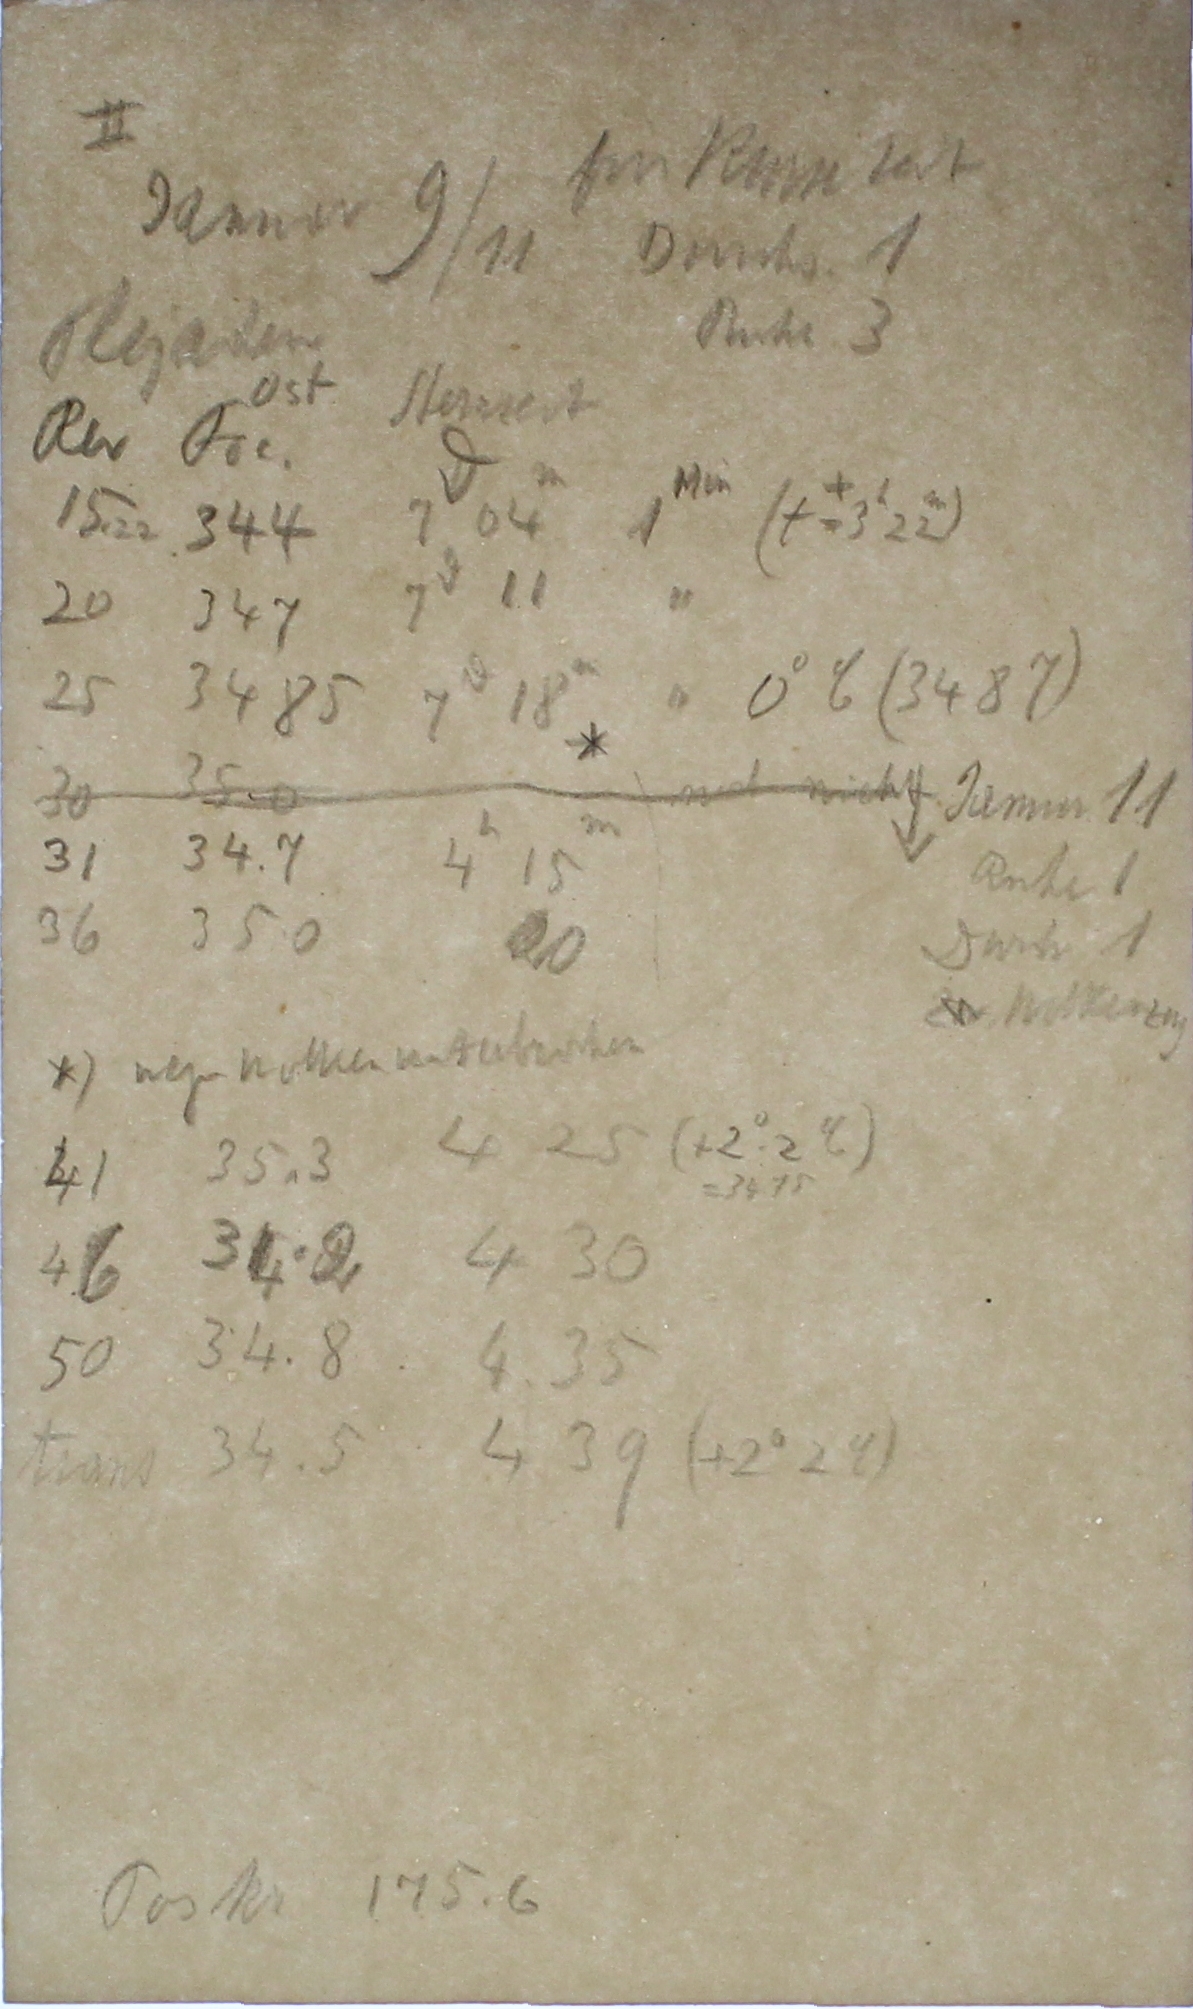 II
für kurze Zeit
Januar 9/11 Durchs. 1
Plejaden Ruhe 3
Ost Sternzeit
Rev Foc.
15.22 344 7 04 m 1 Min (t = + 3 h 22 m)
20 347 7 11 "
25 3485 7 18 m " 0° C (3487)
*
30 35.0 noch nicht Januar 11
31 34.7 4 h 15 m Ruhe 1
36 350 20 Durch 1
Wolkenzug
*) wegen Wolken unterbrochen
41 35.3 4 25 (+2°.2 C)
= 3475
46 34.2 4 30
50 34.8 4.35
trans 34.5 4 39 (+2° 2 C)
Pos Kr 175.6